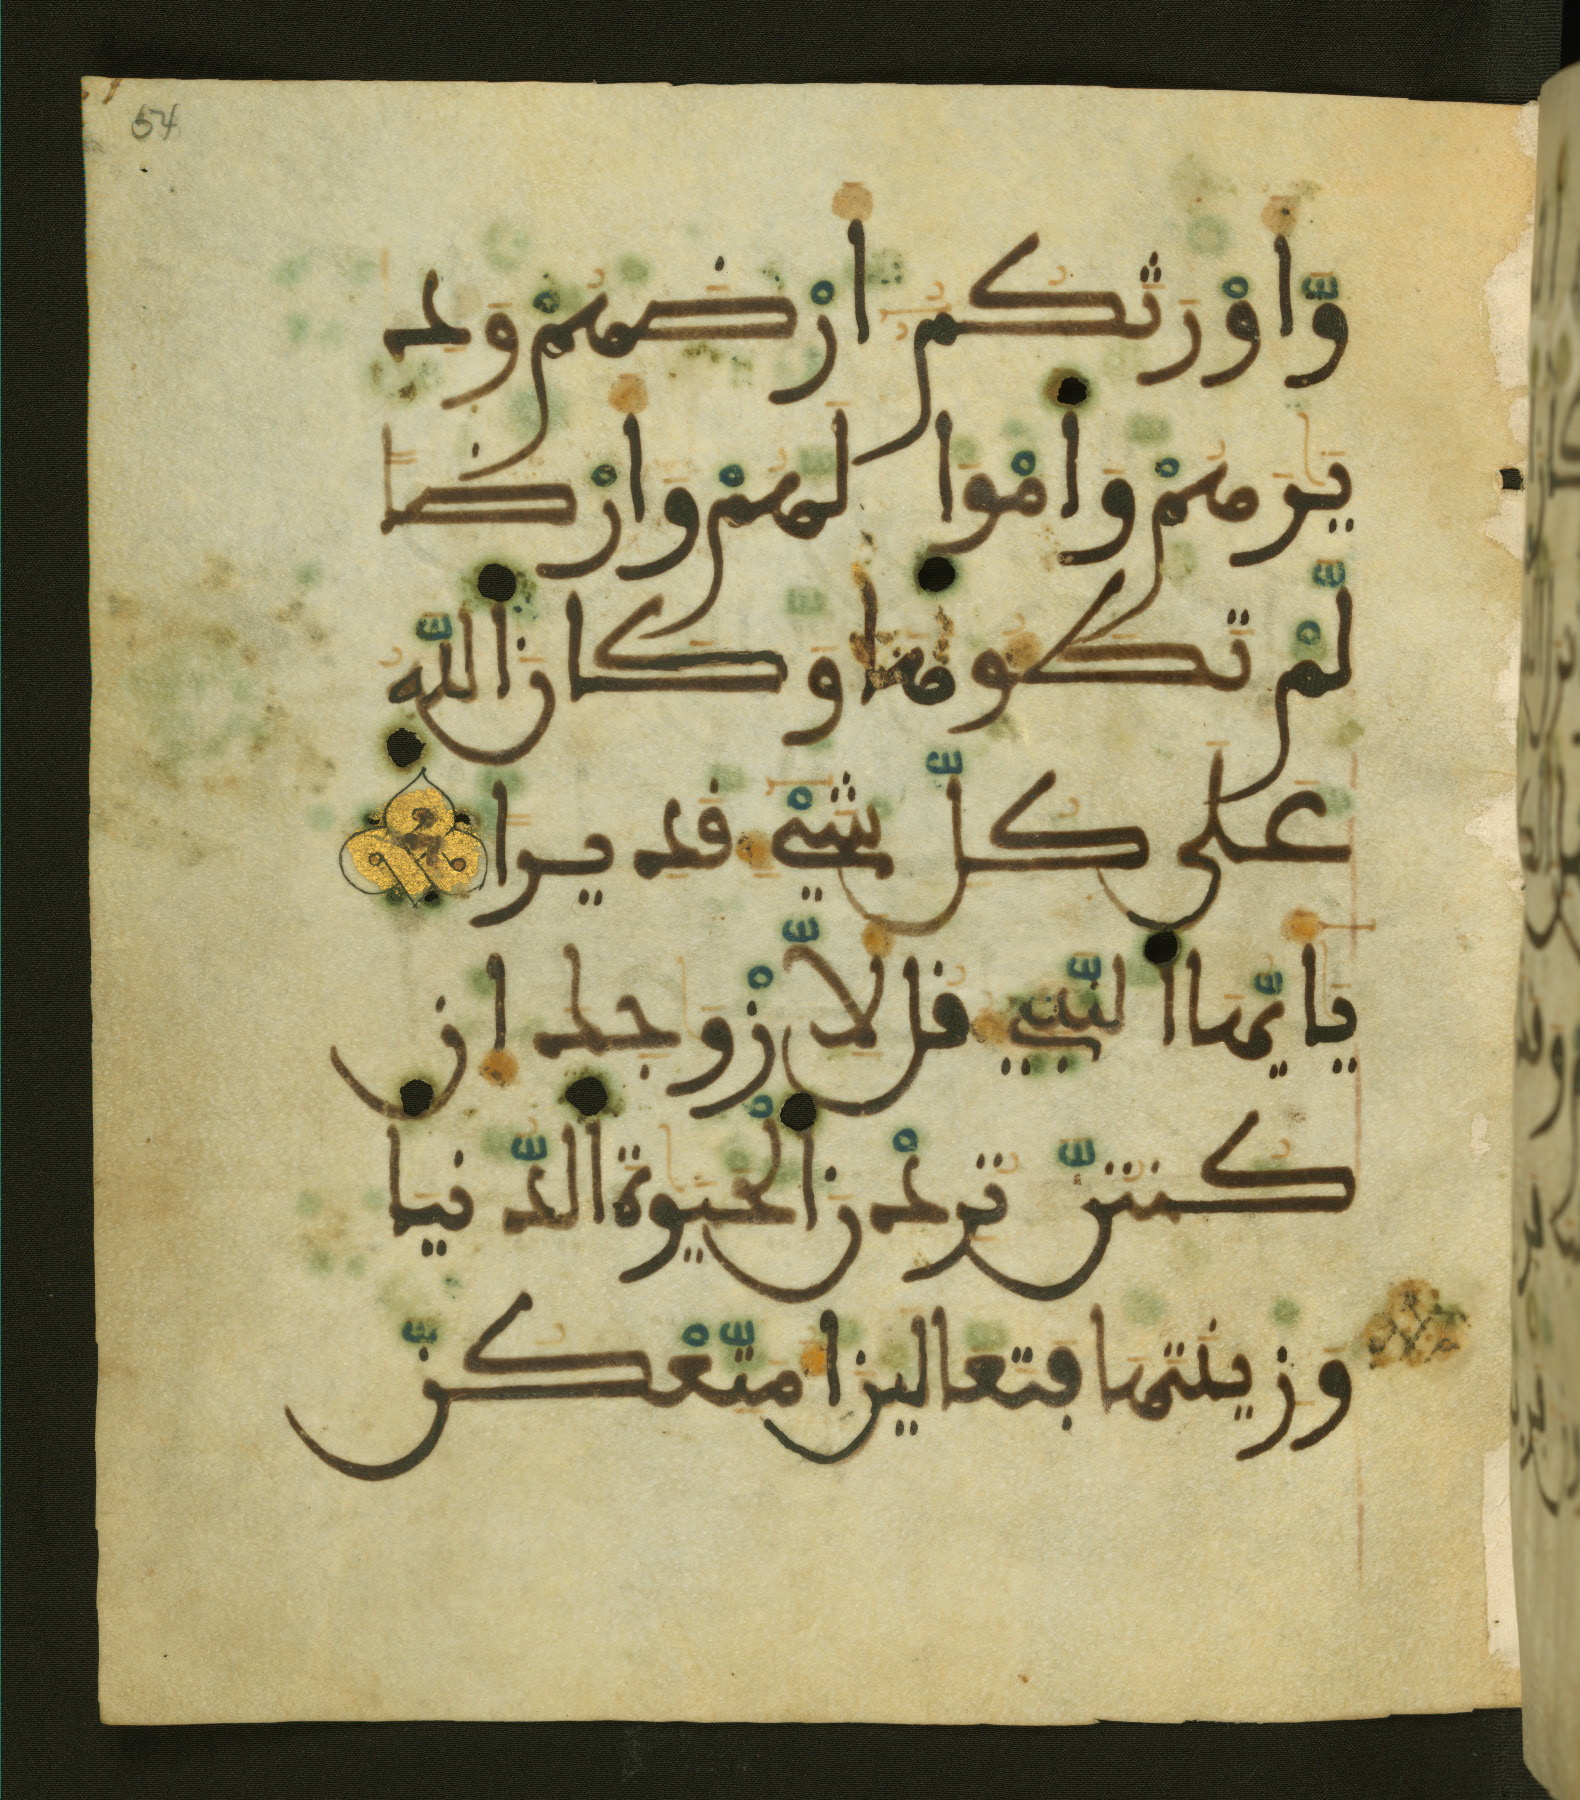 54
وَّاوْرَثَكُمُ ارْضَهُمْ وَدِ
يَٰرَهُمْ وَامْوَا لَهُمْ وَارْضًا
لَّمْ تَطَوهَا وَكَانَ اللَّهُ
عَلَىٰ كُلِّ شَيْءٍ قَدِيرًا
يَٰايُّهَا النَّبِيءُ قُل لِّازْوَٰجِكَ إِن
كُنتُنَّ تُرِدْنَ الْحَيَوٰةَ الدُّنْيَا
وَزِينَتَهَا فَتَعَالَيْنَ امَتِّعْكُنَّ